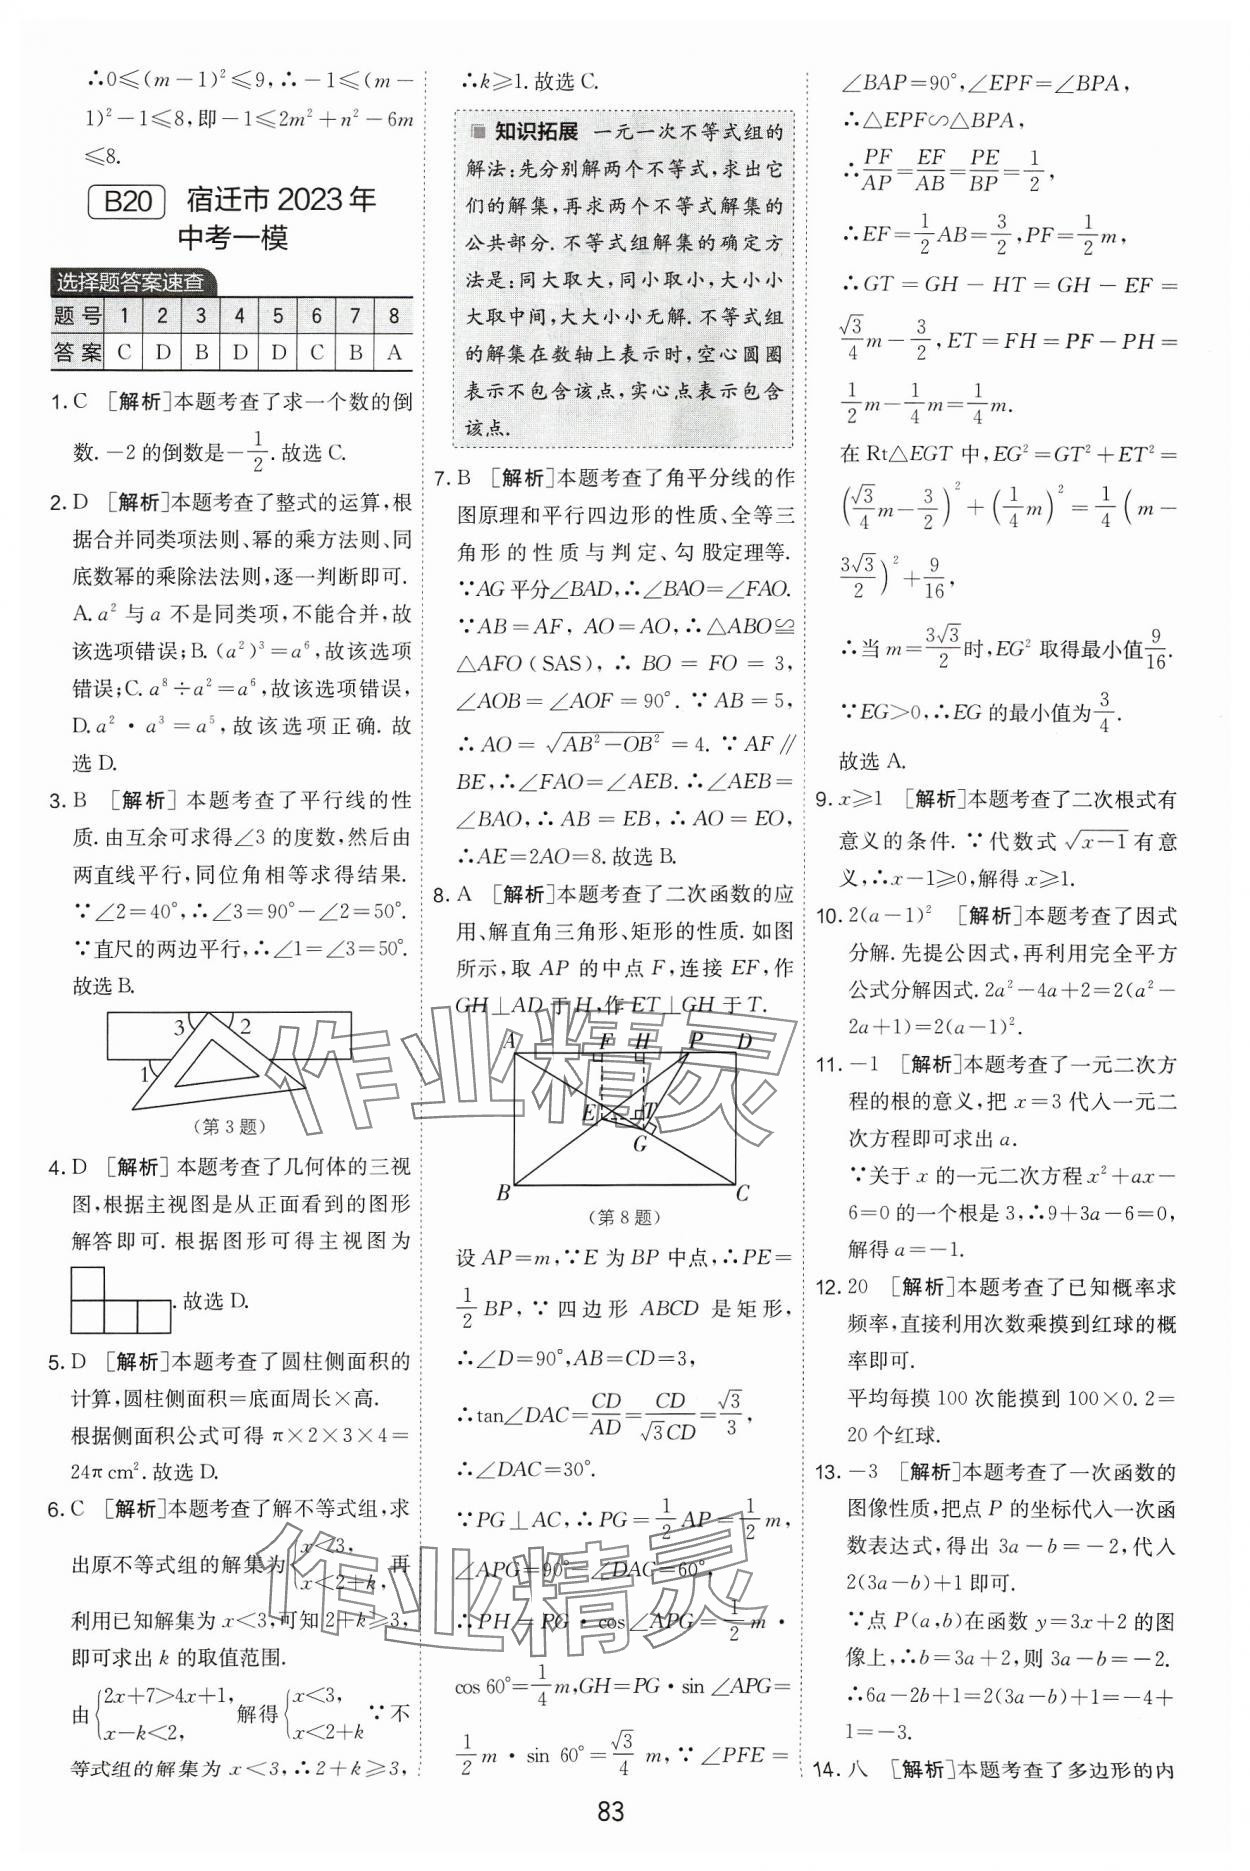 ∴0≤(m-1)²≤9,∴-1≤(m-
1)²-1≤8,即-1≤2m²+n²-6m
≤8.
B20 宿迁市 2023 年
中考一模
选择题答案速查
题号 1 2 3 4 5 6 7 8
答案 C D B D D C B A
1. C [解析]本题考查了求一个数的倒
数.-2的倒数是-1/2.故选C.
2. D [解析]本题考查了整式的运算,根
据合并同类项法则、幂的乘方法则、同
底数幂的乘除法法则,逐一判断即可.
A.a²与a不是同类项,不能合并,故
该选项错误;B.(a²)³=a⁶,故该选项
错误;C.a⁸÷a²=a⁶,故该选项错误,
D.a²·a³=a⁵,故该选项正确.故
选D.
3. B [解析]本题考查了平行线的性
质.由互余可求得∠3的度数,然后由
两直线平行,同位角相等求得结果.
∵∠2=40°,∴∠3=90°-∠2=50°.
∵直尺的两边平行,∴∠1=∠3=50°.
故选B.
3 2
1
(第3题)
4. D [解析]本题考查了几何体的三视
图,根据主视图是从正面看到的图形
解答即可.根据图形可得主视图为
.故选D.
5. D [解析]本题考查了圆柱侧面积的
计算,圆柱侧面积=底面周长×高.
根据侧面积公式可得π×2×3×4=
24π cm².故选D.
6. C [解析]本题考查了解不等式组,求
出原不等式组的解集为{x<3, x<2+k, 再
利用已知解集为x<3,可知2+k≥3,
即可求出k的取值范围.
由{2x+7>4x+1, x-k<2, 解得{x<3, x<2+k ∵不
等式组的解集为x<3,∴2+k≥3,
∴k≥1.故选C.
知识拓展 一元一次不等式组的
解法:先分别解两个不等式,求出它
们的解集,再求两个不等式解集的
公共部分.不等式组解集的确定方
法是:同大取大,同小取小,大小小
大取中间,大大小小无解.不等式组
的解集在数轴上表示时,空心圆圈
表示不包含该点,实心点表示包含
该点.
7. B [解析]本题考查了角平分线的作
图原理和平行四边形的性质、全等三
角形的性质与判定、勾股定理等.
∵AG平分∠BAD,∴∠BAO=∠FAO.
∵AB=AF, AO=AO,∴△ABO≌
△AFO(SAS),∴BO=FO=3,
∠AOB=∠AOF=90°.∵AB=5,
∴AO=√(AB²-OB²)=4.∵AF∥
BE,∴∠FAO=∠AEB.∴∠AEB=
∠BAO,∴AB=EB,∴AO=EO,
∴AE=2AO=8.故选B.
8. A [解析]本题考查了二次函数的应
用、解直角三角形、矩形的性质.如图
所示,取AP的中点F,连接EF,作
GH⊥AD于H,作ET⊥GH于T.
A F H P D
E T
G
B C
(第8题)
设AP=m,∵E为BP中点,∴PE=
1/2BP,∵四边形ABCD是矩形,
∴∠D=90°,AB=CD=3,
∴tan∠DAC=CD/AD=CD/(√3CD)=√3/3,
∴∠DAC=30°.
∵PG⊥AC,∴PG=1/2AP=1/2m,
∠APG=90°-∠DAC=60°,
∴PH=PG·cos∠APG=1/2m·
cos 60°=1/4m,GH=PG·sin∠APG=
1/2m·sin 60°=√3/4 m,∵∠PFE=
∠BAP=90°,∠EPF=∠BPA,
∴△EPF∽△BPA,
∴PF/AP=EF/AB=PE/BP=1/2,
∴EF=1/2AB=3/2,PF=1/2m,
∴GT=GH-HT=GH-EF=
√3/4m-3/2,ET=FH=PF-PH=
1/2m-1/4m=1/4m.
在Rt△EGT中,EG²=GT²+ET²=
(√3/4m-3/2)²+(1/4m)²=1/4(m-
3√3/2)²+9/16,
∴当m=3√3/2时,EG²取得最小值9/16.
∵EG>0,∴EG的最小值为3/4.
故选A.
9. x≥1 [解析]本题考查了二次根式有
意义的条件.∵代数式√(x-1)有意
义,∴x-1≥0,解得x≥1.
10. 2(a-1)² [解析]本题考查了因式
分解.先提公因式,再利用完全平方
公式分解因式.2a²-4a+2=2(a²-
2a+1)=2(a-1)².
11. -1 [解析]本题考查了一元二次方
程的根的意义,把x=3代入一元二
次方程即可求出a.
∵关于x的一元二次方程x²+ax-
6=0的一个根是3,∴9+3a-6=0,
解得a=-1.
12. 20 [解析]本题考查了已知概率求
频率,直接利用次数乘摸到红球的概
率即可.
平均每摸100次能摸到100×0.2=
20个红球.
13. -3 [解析]本题考查了一次函数的
图像性质,把点P的坐标代入一次函
数表达式,得出3a-b=-2,代入
2(3a-b)+1即可.
∵点P(a,b)在函数y=3x+2的图
像上,∴b=3a+2,则3a-b=-2.
∴6a-2b+1=2(3a-b)+1=-4+
1=-3.
14. 八 [解析]本题考查了多边形的内
83
作业精灵
作业精灵